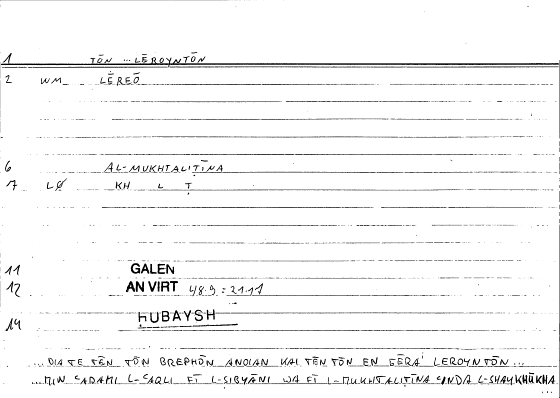 1 TŌN ... LĒROYNTŌN
2 WM_ LĒREŌ
6 AL-MUKHTALIṬĪNA
7 LØ KH L Ṭ
11 GALEN
12 AN VIRT 48.9 = 21.11
14 ḤUBAYSH
...DIA TE TĒN TŌN BREPHŌN ANOIAN KAI TĒN TŌN EN GĒRA LEROYNTŌN...
...MIN ʿADAMI L-ʿAQLI FĪ L-SIBYĀNI WA FĪ L-MUKHTALIṬĪNA ʿINDA L-SHAYKHŪKHA